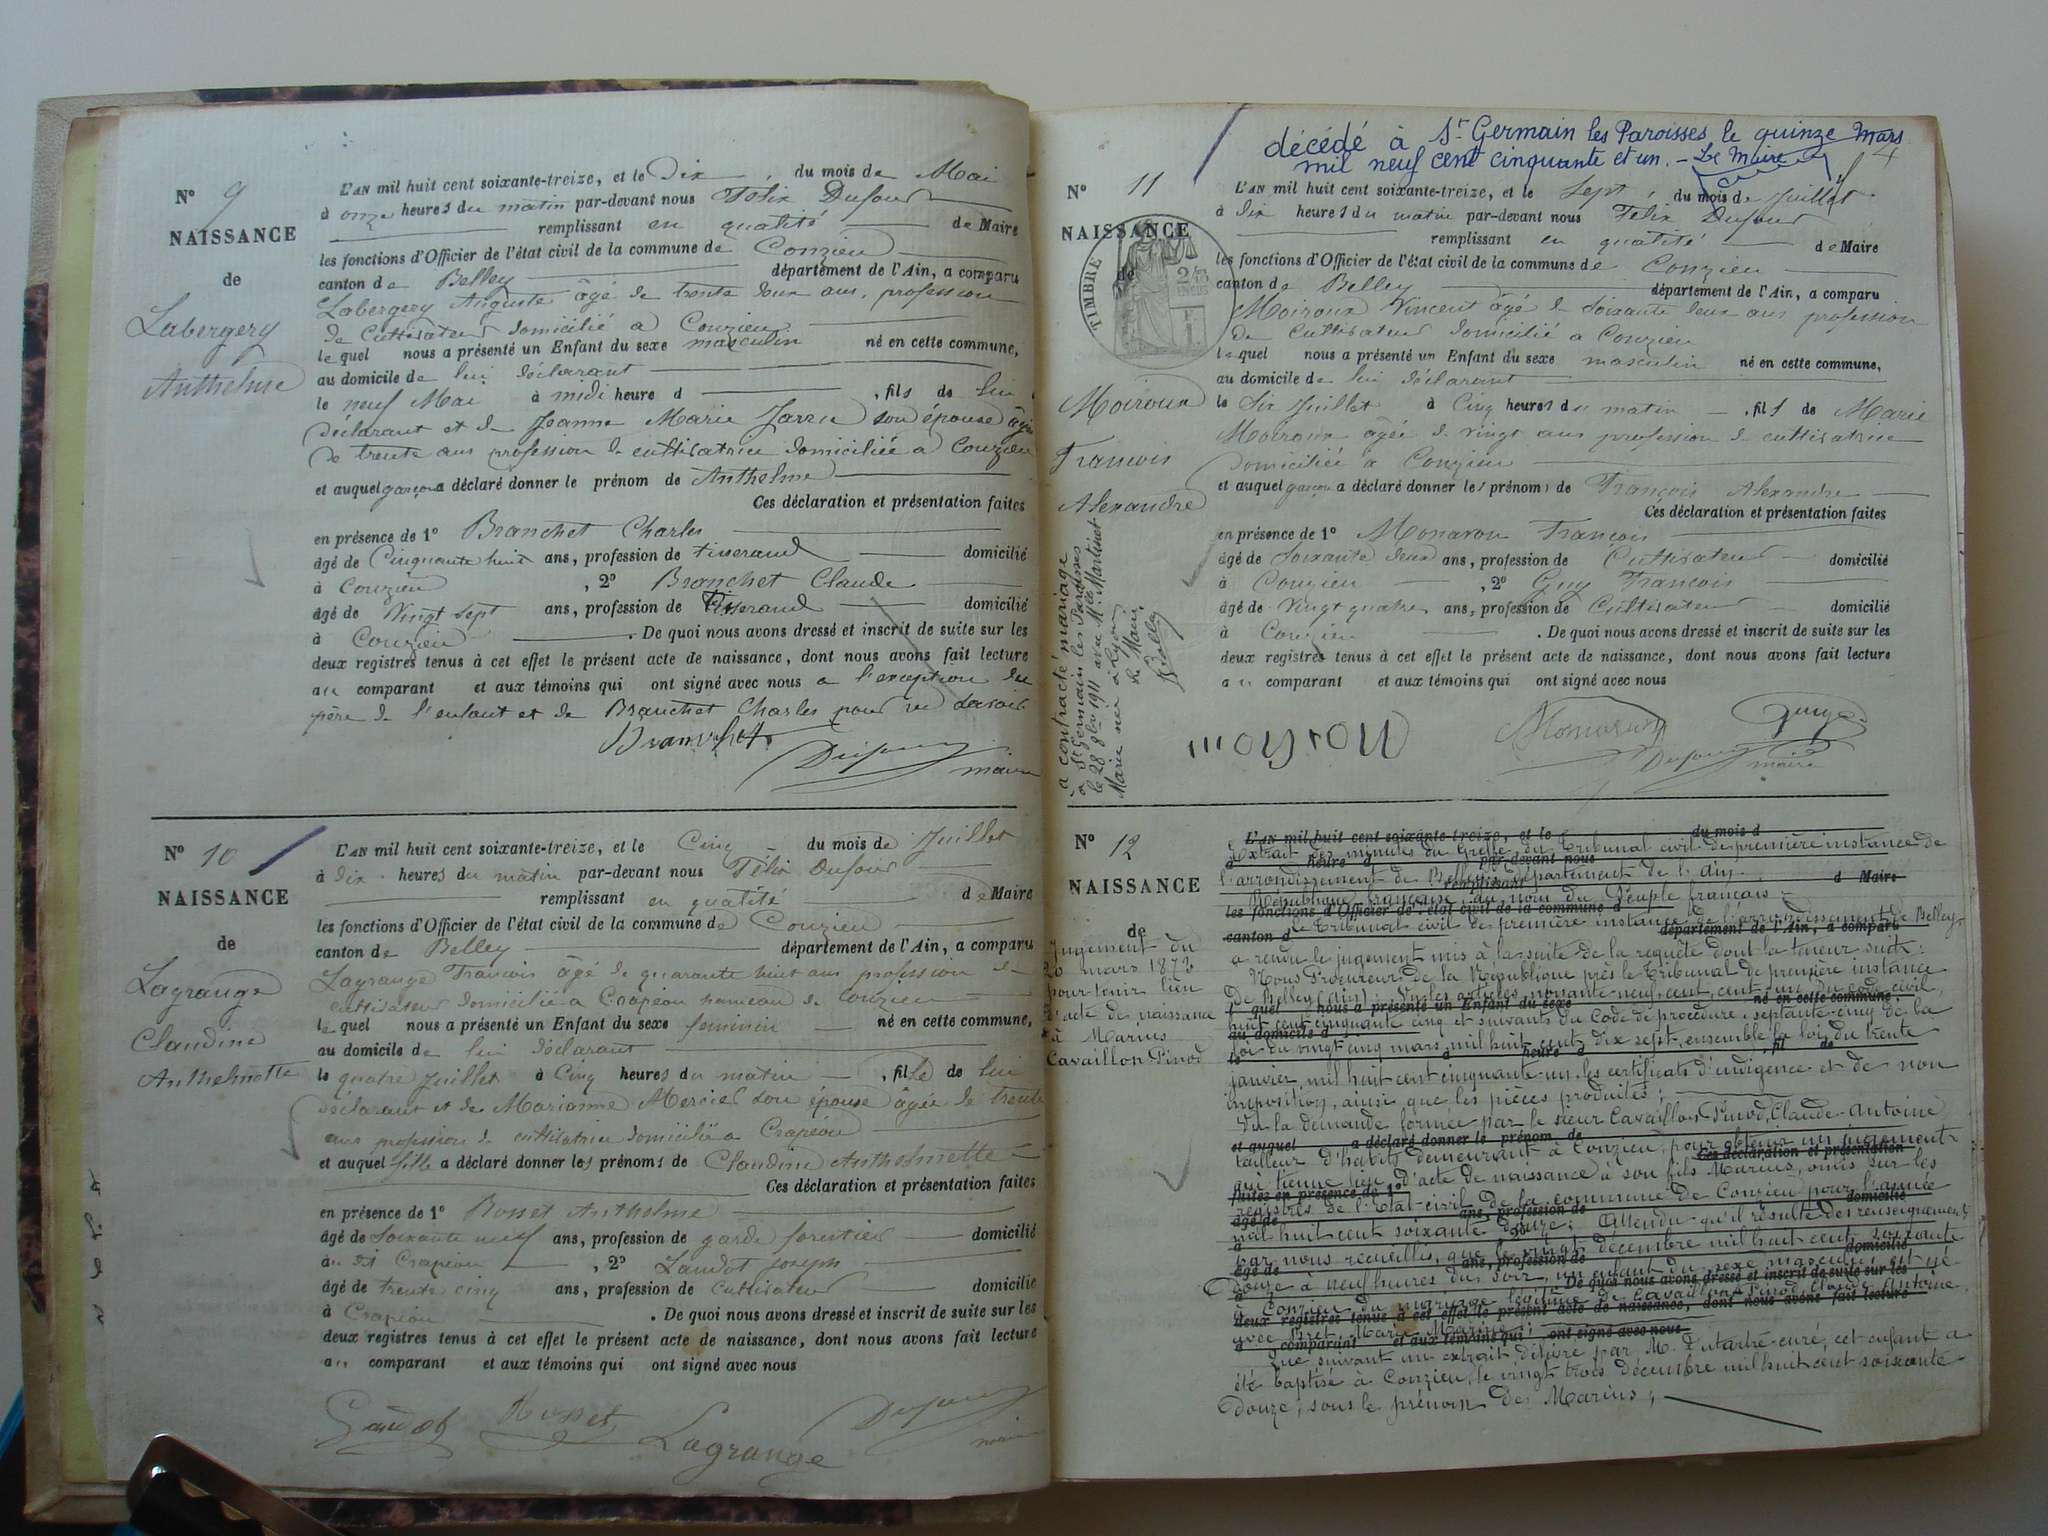 N° 9
NAISSANCE
de
Labergery
Anthelme
L'AN mil huit cent soixante-treize, et le Dix, du mois de Mai
à onze heures du matin par-devant nous Félix Dufour
remplissant en qualité de Maire
les fonctions d'Officier de l'état civil de la commune de Conzieu
canton de Belley département de l'Ain, a comparu
Labergery Auguste âgé de trente deux ans, profession
de Cultivateur domicilié à Conzieu
lequel nous a présenté un Enfant du sexe masculin né en cette commune,
au domicile de lui déclarant
le neuf Mai à midi heure d , fils de lui
déclarant et de Jeanne Marie son épouse âgée
de trente ans profession de cultivatrice domiciliée à Conzieu
et auquel garçon a déclaré donner le prénom de Anthelme
Ces déclaration et présentation faites
en présence de 1° Branchet Charles
âgé de Cinquante huit ans, profession de tisserand domicilié
à Conzieu, 2° Branchet Claude
âgé de Vingt sept ans, profession de Tisserand domicilié
à Conzieu. De quoi nous avons dressé et inscrit de suite sur les
deux registres tenus à cet effet le présent acte de naissance, dont nous avons fait lecture
au comparant et aux témoins qui ont signé avec nous a l'exception du
père de l'enfant et de Branchet Charles pour ne savoir
Branchet
Dufour
maire
N° 10
NAISSANCE
de
Lagrange
Claudine
Anthelmette
L'AN mil huit cent soixante-treize, et le Cinq du mois de Juillet
à dix heures du matin par-devant nous Félix Dufour
remplissant en qualité de Maire
les fonctions d'Officier de l'état civil de la commune de Conzieu
canton de Belley département de l'Ain, a comparu
Lagrange Francois âgé de quarante huit ans profession de
cultivateur domicilié a Crapéou hameau de Conzieu
lequel nous a présenté un Enfant du sexe feminin né en cette commune,
au domicile de lui déclarant
le quatre Juillet à Cinq heures du matin, fille de lui
déclarant et de Marianne Mercier son épouse âgée de trente
ans profession de cultivatrice domiciliée a Crapéou
et auquel fille a déclaré donner les prénoms de Claudine Anthelmette
Ces déclaration et présentation faites
en présence de 1° Rosset Anthelme
âgé de Soixante neuf ans, profession de garde forestier domicilié
au dit Crapéou, 2° Gaudot Joseph
âgé de trente cinq ans, profession de Cultivateur domicilié
à Crapéou. De quoi nous avons dressé et inscrit de suite sur les
deux registres tenus à cet effet le présent acte de naissance, dont nous avons fait lecture
au comparant et aux témoins qui ont signé avec nous
Gaudot Rosset Lagrange Dufour
maire
décédé à St Germain les Paroisses le quinze Mars
mil neuf cent cinquante et un. - Le Maire
N° 11
NAISSANCE
de
TIMBRE
Moiroux
Francois
Alexandre
a contracté mariage
à St Germain les Paroisses
le 28 8bre 1911 avec Mlle Martinet
Marie née à Lyon
Le Maire,
L'AN mil huit cent soixante-treize, et le Sept, du mois de Juillet
à dix heures du matin par-devant nous Félix Dufour
remplissant en qualité de Maire
les fonctions d'Officier de l'état civil de la commune de Conzieu
canton de Belley département de l'Ain, a comparu
Moiroux Vincent âgé de Soixante deux ans profession
de Cultivateur domicilié a Conzieu
lequel nous a présenté un Enfant du sexe masculin né en cette commune,
au domicile de lui déclarant
le Six Juillet à Cinq heures du matin, fils de Marie
Moiroux agée de vingt ans profession de cultivatrice
domiciliée à Conzieu
et auquel garçon a déclaré donner les prénoms de François Alexandre
Ces déclaration et présentation faites
en présence de 1° Monavon François
âgé de Soixante deux ans, profession de Cultivateur domicilié
à Conzieu, 2° Guy Francois
âgé de vingt quatre ans, profession de Cultivateur domicilié
à Conzieu. De quoi nous avons dressé et inscrit de suite sur les
deux registres tenus à cet effet le présent acte de naissance, dont nous avons fait lecture
au comparant et aux témoins qui ont signé avec nous
Monavon
Dufour maire
N° 12
NAISSANCE
de
Jugement du
20 mars 1873
pour tenir lieu
d'acte de naissance
à Marius
Cavaillon Pinod
L'AN mil huit cent soixante-treize, et le du mois d
Extrait des minutes du Greffe du Tribunal civil de première instance de
à heure d par-devant nous
l'arrondissement de Belley, département de l'ain.
remplissant d Maire
République française au nom du Peuple français
les fonctions d'Officier de l'état civil de la commune d
le Tribunal civil de première instance de l'arrondissement de Belley
canton d département de l'Ain, a comparu
a rendu le jugement mis à la suite de la requête dont la teneur suit:
Nous Procureur de la République près le Tribunal de première instance
De Belley (ain); Vu les articles nonante-neuf, cent, cent-un, du code civil,
l quel nous a présenté un Enfant du sexe né en cette commune,
huit cent cinquante cinq et suivants du Code de procédure, septante-cinq de la
au domicile d
loi du vingt cinq mars mil huit cent dix sept, ensemble la loi du trente
le à heure d , fil de
janvier mil huit cent cinquante-un, les certificats d'indigence et de non
imposition, ainsi que les pièces produites;
Vu la demande formée par le sieur Cavaillon-Pinod, Claude-Antoine
et auquel a déclaré donner le prénom de
tailleur d'habits demeurant à Conzieu, pour obtenir un jugement
Ces déclaration et présentation
qui tienne lieu d'acte de naissance à son fils Marius, omis sur les
faites en présence de 1°
registres de l'Etat-civil de la commune de Conzieu pour l'année
âgé de ans, profession de domicilié
mil huit cent soixante douze; Attendu qu'il résulte des renseignements
par nous recueillis, que le vingt décembre mil huit cent soixante
âgé de ans, profession de domicilié
Douze à neuf heures du soir, un enfant du sexe masculin est né
à De quoi nous avons dressé et inscrit de suite sur les
à Conzieu du mariage légitime de Cavaillon Pinod Claude Antoine
deux registres tenus à cet effet le présent acte de naissance, dont nous avons fait lecture
avec Marie
a comparant et aux témoins qui ont signé avec nous
Que suivant un extrait délivré par M. Dutartre curé, cet enfant a
été baptisé à Conzieu, le vingt trois décembre mil huit cent soixante
Douze, sous le prénom de Marius;